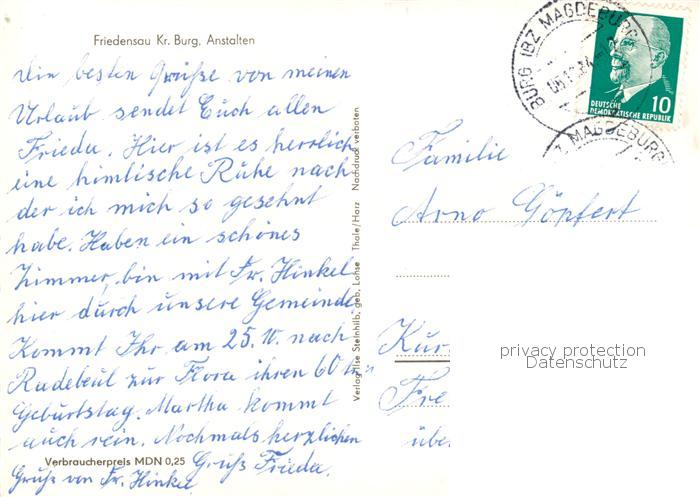 Friedensau Kr. Burg, Anstalten
Die besten Grüße von meinen
Urlaub sendet Euch allen
Frieda. Hier ist es herrlich
eine himlische Ruhe nach
der ich mich so gesehnt
habe. Haben ein schönes
Zimmer, bin mit Fr. Hinkel
hier durch unsere Gemeinde.
Kommt Ihr am 25.10. nach
Radebeul zur Flora ihren 60 ten
Geburtstag. Martha kommt
auch rein. Nochmals herzlichen
Verbraucherpreis MDN 0,25 Gruß Frieda.
Gruß von Fr. Hinkel
Verlag Ilse Steinhilb, geb. Lohse Thale/Harz Nachdruck verboten
BURG (BZ MAGDEBURG)
DEUTSCHE
DEMOKRATISCHE REPUBLIK
10
Z MAGDEBURG)
Familie
Arno Göpfert
Kur
Fre
übe
privacy protection
Datenschutz